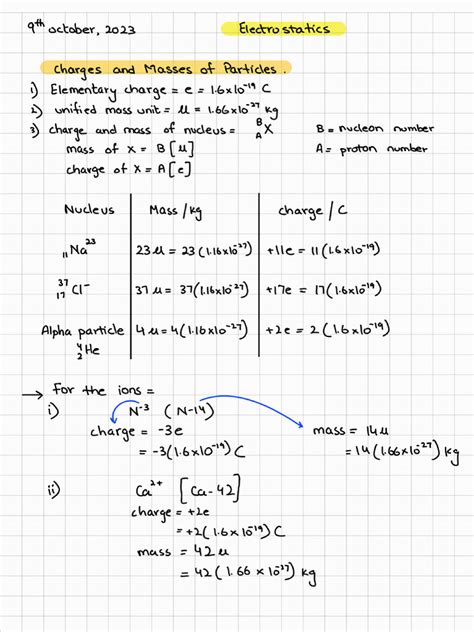 9th october, 2023
Electrostatics
Charges and Masses of Particles.
1) Elementary charge = e = 1.6x10⁻¹⁹ C
2) unified mass unit = u = 1.66x10⁻²⁷ kg
3) charge and mass of nucleus = ᴮ_A X B = nucleon number
mass of X = B [u] A = proton number
charge of X = A [e]
Nucleus Mass / kg charge / C
₁₁Na²³ 23u = 23 (1.16x10⁻²⁷) +11e = 11 (1.6x10⁻¹⁹)
³⁷₁₇Cl⁻ 37u = 37(1.16x10⁻²⁷) +17e = 17(1.6x10⁻¹⁹)
Alpha particle 4u = 4(1.16x10⁻²⁷) +2e = 2 (1.6x10⁻¹⁹)
⁴₂He
→ For the ions =
i) N⁻³ (N-14)
charge = -3e mass = 14u
= -3(1.6x10⁻¹⁹) C = 14(1.66x10⁻²⁷) kg
ii) Ca²⁺ [Ca-42]
charge = +2e
= +2(1.6x10⁻¹⁹) C
mass = 42u
= 42(1.66x10⁻²⁷) kg